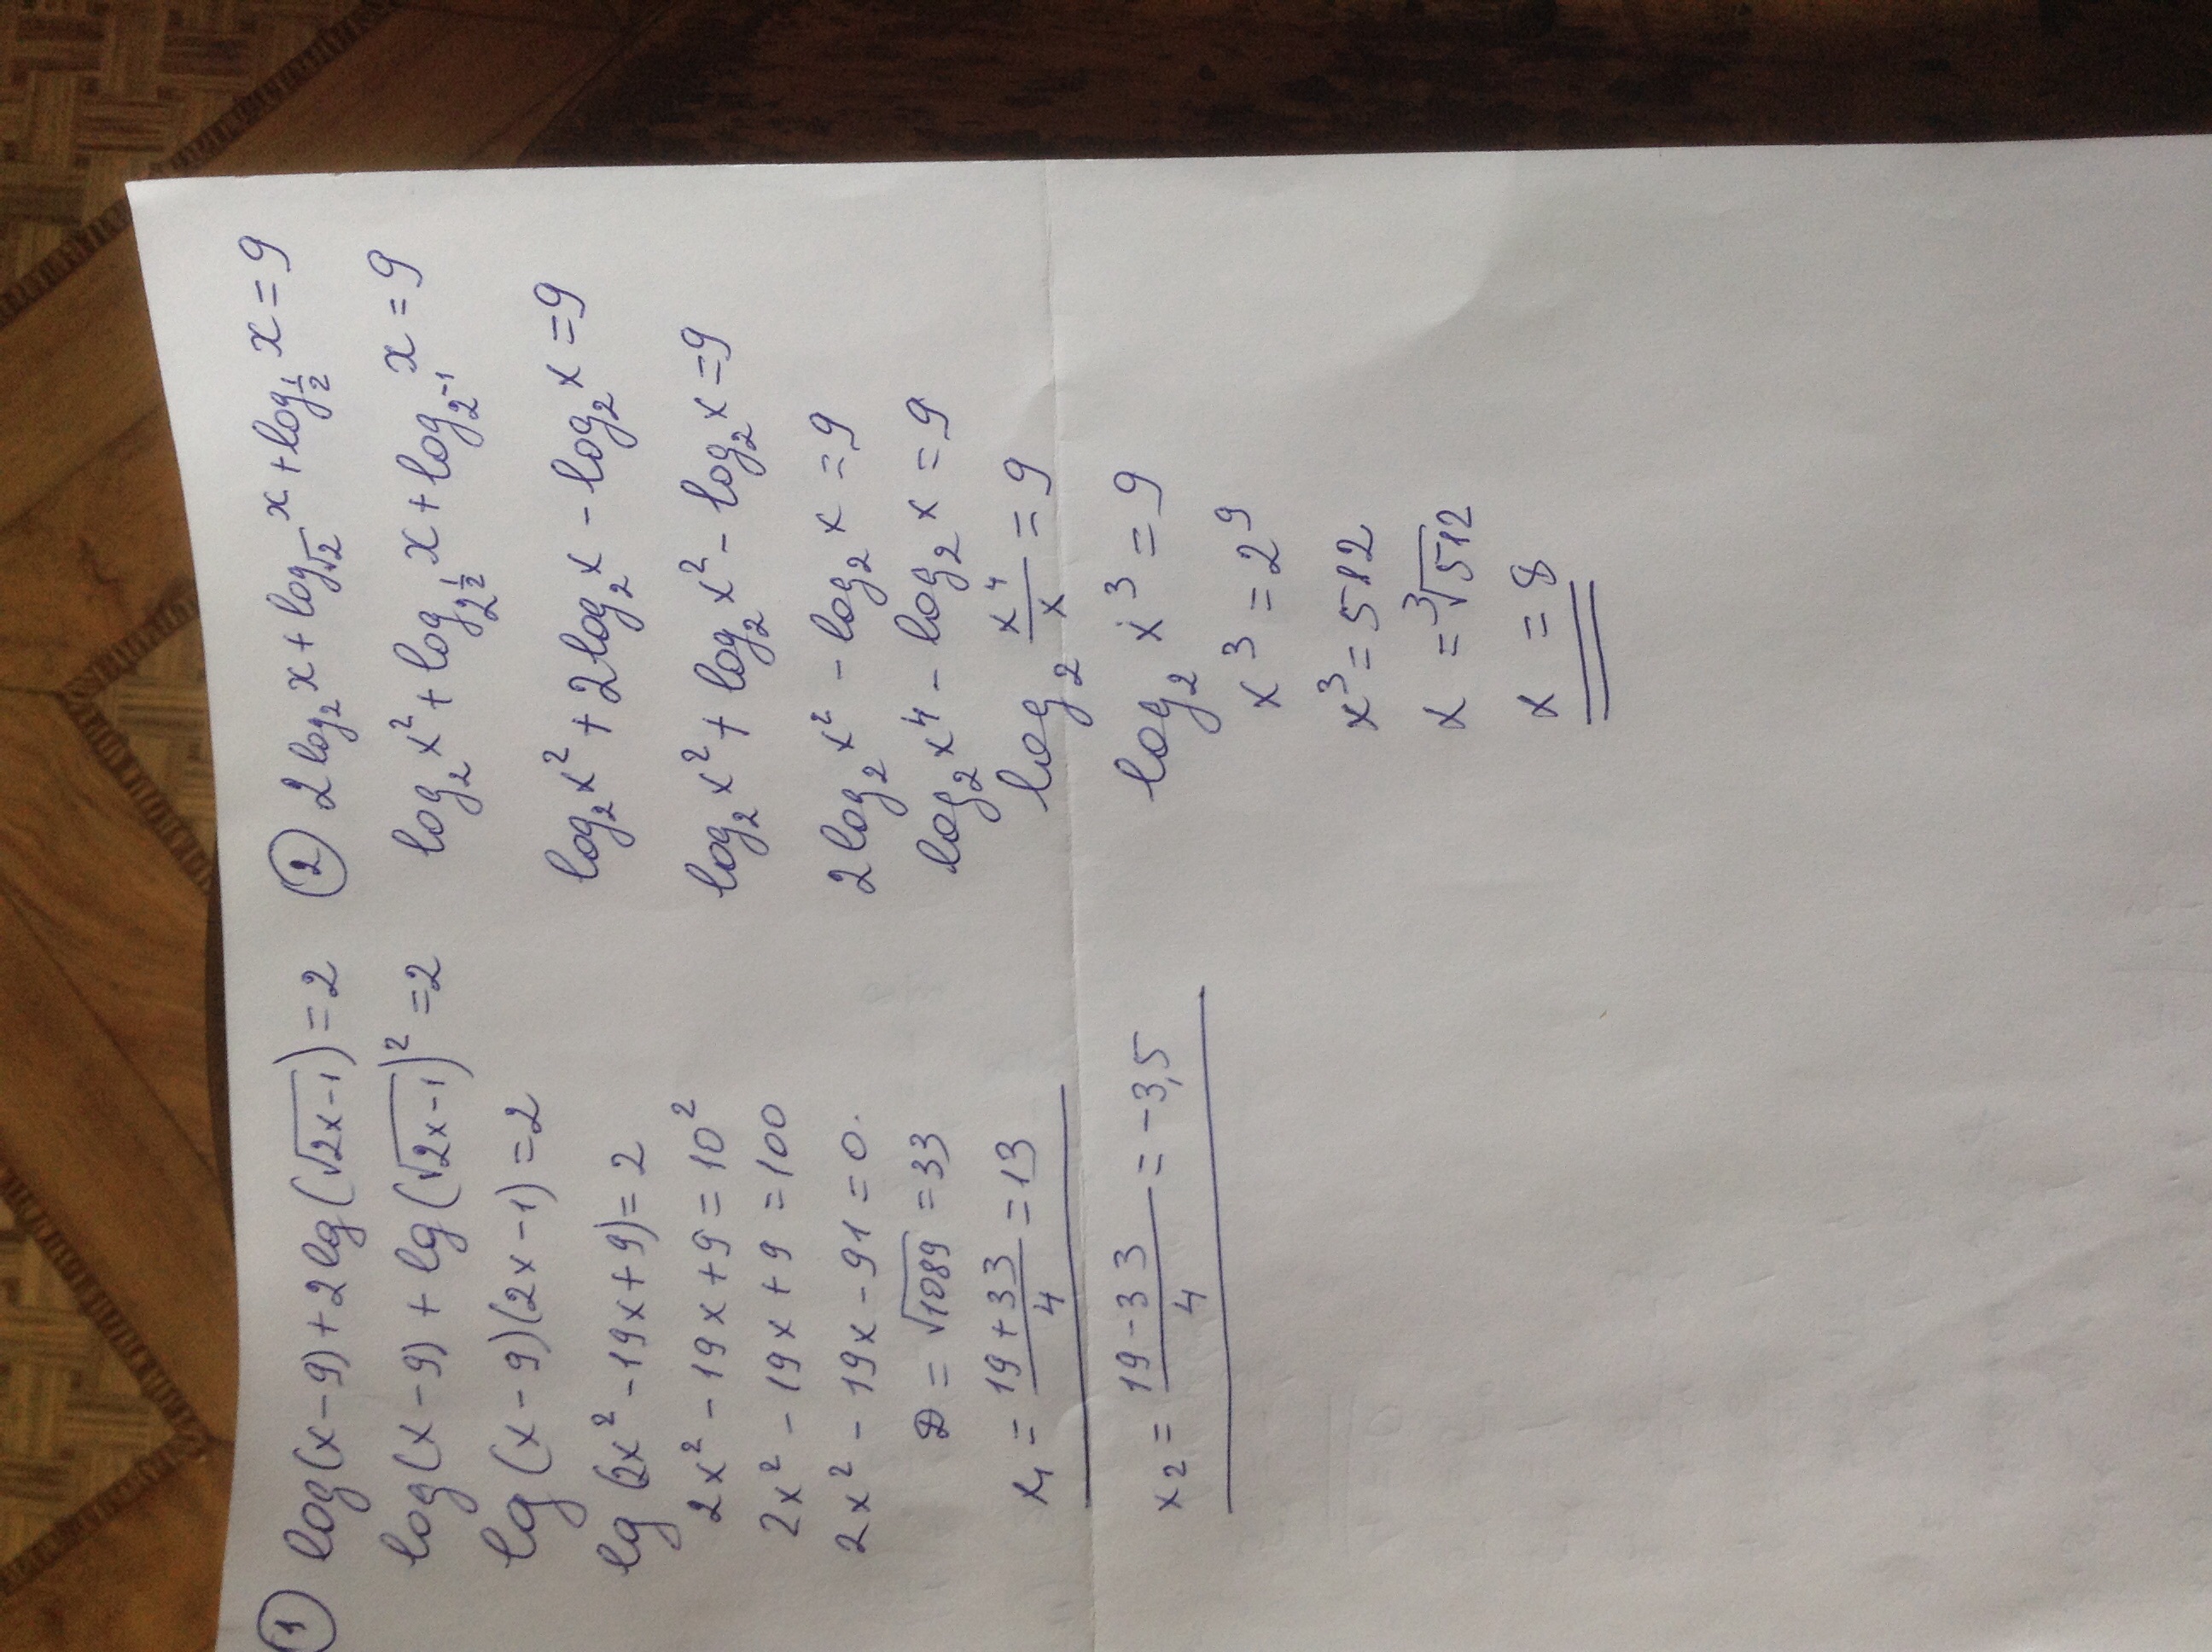 ① log(x-9)+2lg(√(2x-1))=2
log(x-9)+lg(√(2x-1))²=2
lg(x-9)(2x-1)=2
lg(2x²-19x+9)=2
2x²-19x+9=10²
2x²-19x+9=100
2x²-19x-91=0.
D=√1089=33
x₁=(19+33)/4=13
x₂=(19-33)/4=-3,5
② 2log₂x+log_√2 x+log_(1/2) x=9
log₂x²+log_(2^(1/2)) x+log_(2^(-1)) x=9
log₂x²+2log₂x-log₂x=9
log₂x²+log₂x²-log₂x=9
2log₂x²-log₂x=9
log₂x⁴-log₂x=9
log₂ x⁴/x=9
log₂x³=9
x³=2⁹
x³=512
x=³√512
x=8